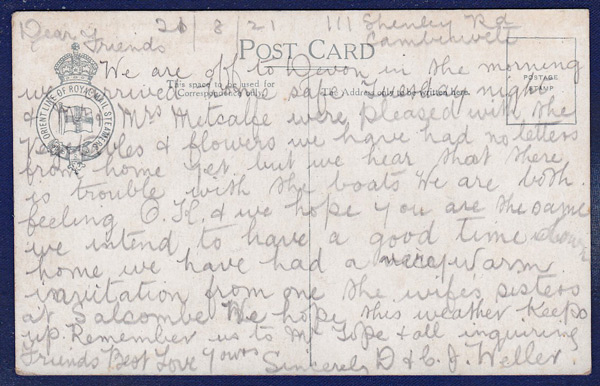 Dear Friends 26/8/21 111 Shenley Rd
Camberwell
POST CARD
ORIENT LINE OF ROYAL MAIL STEAMERS
This space to be used for Correspondence only.
The Address only to be written here.
POSTAGE STAMP
We are off to Devon in the morning
we arrived home safe Tuesday night
& Mrs Metcalfe were pleased with the
& flowers we have had no letters
from home yet but we hear that there
is trouble with the boats We are both
feeling O.K. & we hope you are the same
we intend to have a good time down
home we have had a very warm
invitation from one the wifes sisters
at Salcombe We hope this weather keeps
up. Remember us to Mr Tope & all inquiring
Friends Best Love Yours Sincerely D & C. J. Weller.